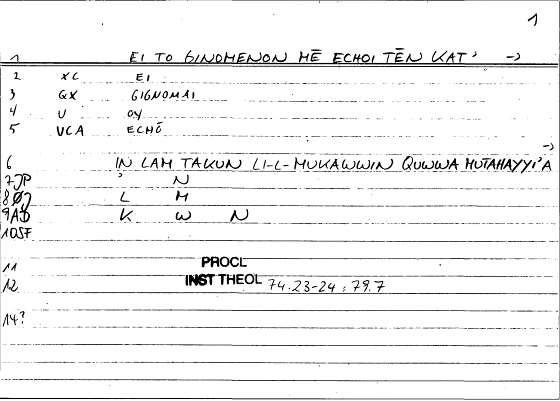 1
1 EI TO GINOMENON MĒ ECHOI TĒN KAT' ->
2 XC EI
3 GX GIGNOMAI
4 U OY
5 VCA ECHŌ
->
6 IN LAM TAKUN LI-L-MUKAWWIN QUWWA MUTAHAYYI'A
7 JP ' N
8 ØJ L M
9 AD K W N
10 SF
11 PROCL
12 INST THEOL 74.23-24 : 79.7
14?